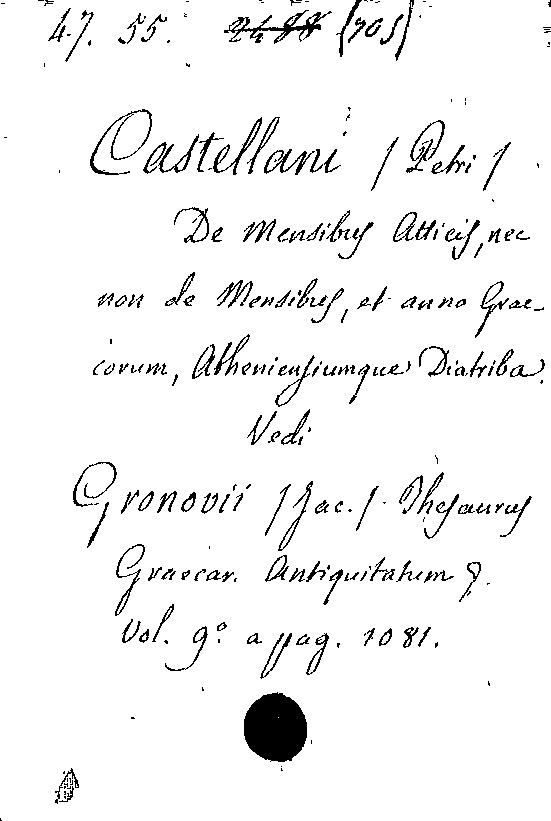 47. 55. 2488 (705)
Castellani / Petri /
De Mensibus Atticis, nec
non de Mensibus, et anno Grae-
corum, Atheniensiumque Diatriba.
Vedi
Gronovii / Jac. / Thesaurus
Graecar. Antiquitatum &.
Vol. 9.º a pag. 1081.